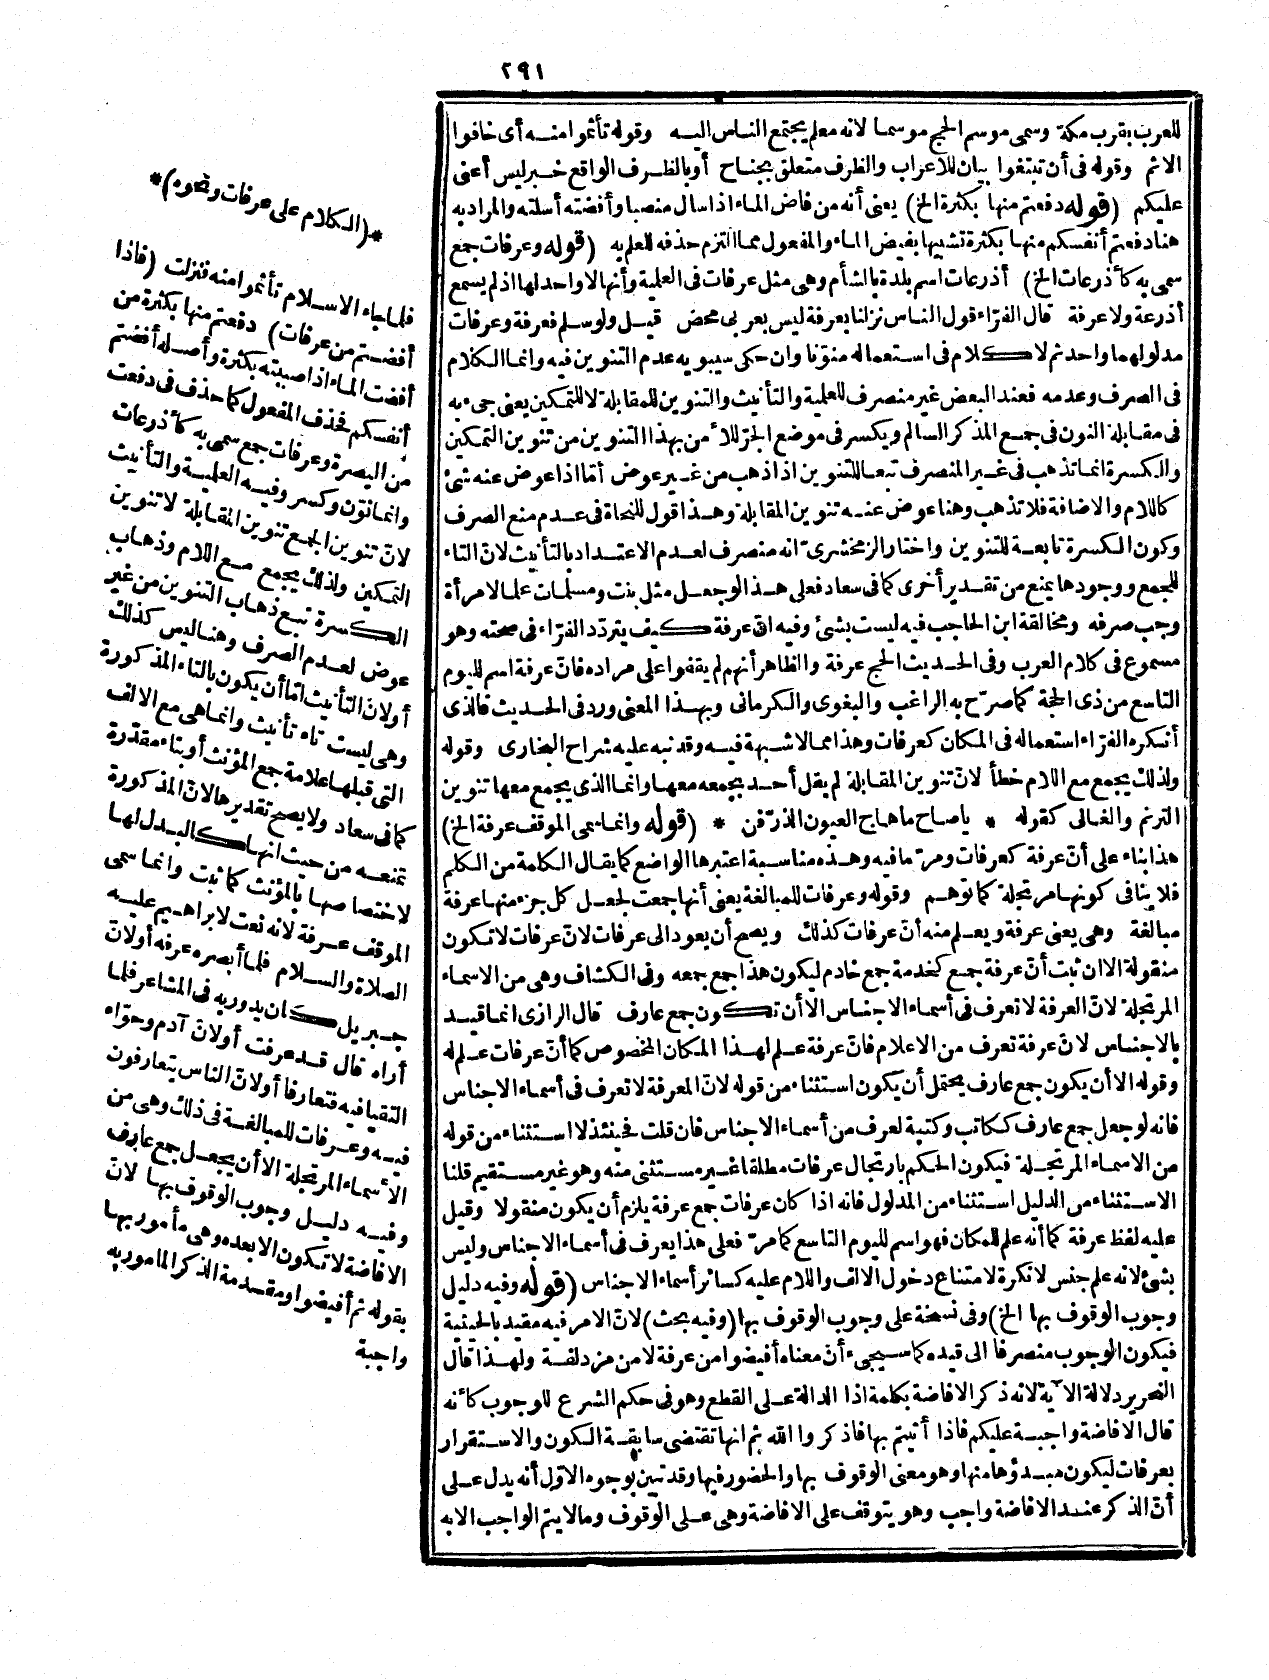 ٢٩١
للعرب بقرب مكة وسمى موسم الحج موسما لانه معلم يجتمع الناس اليه وقوله تأثموا منه أى خافوا
الاثم وقوله فى أن تبتغوا بيان للاعراب والظرف متعلق بجناح أو بالظرف الواقع خبر ليس أعنى
عليكم (قوله دفعتم منها بكثرة الخ) يعنى أنه من فاض الماء اذا سال منصبا وأفضته أسلته والمراد به
هنا دفعتم أنفسكم منها بكثرة تشبيها بفيض الماء والمفعول مما التزم حذفه للعلم به (قوله وعرفات جمع
سمى به كأذرعات الخ) أذرعات اسم بلدة بالشأم وهى مثل عرفات فى العلمية وأنها لا واحد لها اذ لم يسمع
أذرعة ولا عرفة قال الفرّاء قول الناس نزلنا بعرفة ليس بعربى محض قيل ولو سلم فعرفة وعرفات
مدلولهما واحد ثم لا كلام فى استعماله منوّنا وان حكى سيبويه عدم التنوين فيه وانما الكلام
فى الصرف وعدمه فعند البعض غير منصرف للعلمية والتأنيث والتنوين للمقابلة لا للتمكين يعنى جىء به
فى مقابلة النون فى جمع المذكر السالم ويكسر فى موضع الجرّ للأمن بهذا التنوين من تنوين التمكين
والكسرة انما تذهب فى غير المنصرف تبعا للتنوين اذا ذهب من غير عوض أمّا اذا عوض عنه شئ
كاللام والاضافة فلا تذهب وهنا عوض عنه تنوين المقابلة وهذا قول للنحاة فى عدم منع الصرف
وكون الكسرة تابعة للتنوين واختار الزمخشرىّ انه منصرف لعدم الاعتداد بالتأنيث لانّ التاء
للجمع ووجودها يمنع من تقدير أخرى كما فى سعاد فعلى هذا لو جعل مثل بنت ومسلمات علما لامرأة
وجب صرفه ومخالفة ابن الحاجب فيه ليست بشئ وفيه انّ عرفة كيف يتردّد الفرّاء فى صحته وهو
مسموع فى كلام العرب وفى الحديث الحج عرفة والظاهر أنهم لم يقفوا على مراده فانّ عرفة اسم لليوم
التاسع من ذى الحجة كما صرّح به الراغب والبغوى والكرمانى وبهذا المعنى ورد فى الحديث فالذى
أنكره الفرّاء استعماله فى المكان كعرفات وهذا مما لا شبهة فيه وقد نبه عليه شراح البخارى وقوله
ولذلك يجمع مع اللام خطأ لانّ تنوين المقابلة لم يقل أحد بجمعه معها وانما الذى يجمع معها تنوين
الترنم والغالى كقوله * ياصاح ماهاج العيون الذرّفن * (قوله وانما سمى الموقف عرفة الخ)
هذا بناء على أنّ عرفة كعرفات ومرّ ما فيه وهذه مناسبة اعتبرها الواضع كما يقال الكلمة من الكلم
فلا ينافى كونها مرتجلة كما توهم وقوله وعرفات للمبالغة يعنى أنها جمعت لجعل كل جزء منها عرفة
مبالغة وهى يعنى عرفة ويعلم منه أنّ عرفات كذلك ويصح أن يعود الى عرفات لانّ عرفات لا تكون
منقولة الا ان ثبت أنّ عرفة جمع كخدمة جمع خادم ليكون هذا جمع جمعه وفى الكشاف وهى من الاسماء
المرتجلة لانّ العرفة لا تعرف فى أسماء الاجناس الا أن تكون جمع عارف قال الرازى انما قيد
بالاجناس لانّ عرفة تعرف من الاعلام فانّ عرفة علم لهذا المكان المخصوص كما أنّ عرفات علم له
وقوله الا أن يكون جمع عارف يحتمل أن يكون استثناء من قوله لانّ المعرفة لا تعرف فى أسماء الاجناس
فانه لو جعل جمع عارف ككاتب وكتبة لعرف من أسماء الاجناس فان قلت فحينئذ لا استثناء من قوله
من الاسماء المرتجلة فيكون الحكم بارتجال عرفات مطلقا غير مستثنى منه وهو غير مستقيم قلنا
الاستثناء من الدليل استثناء من المدلول فانه اذا كان عرفات جمع عرفة يلزم أن يكون منقولا وقيل
عليه لفظ عرفة كما أنه علم للمكان فهو اسم لليوم التاسع كما مرّ فعلى هذا يعرف فى أسماء الاجناس وليس
بشئ لانه علم جنس لا نكرة لامتناع دخول الالف واللام عليه كسائر أسماء الاجناس (قوله وفيه دليل
وجوب الوقوف بها الخ) وفى نسخة على وجوب الوقوف بها (وفيه بحث) لانّ الامر فيه مقيد بالحيثية
فيكون الوجوب منصرفا الى قيده كما سيجىء أنّ معناه أفيضوا من عرفة لا من مزدلفة ولهذا قال
النحرير دلالة الآية لانه ذكر الافاضة بكلمة اذا الدالة على القطع وهو فى حكم الشرع للوجوب كأنه
قال الافاضة واجبة عليكم فاذا أتيتم بها فاذكروا الله ثم انها تقتضى سابقة الكون والاستقرار
بعرفات ليكون مبدؤها منها وهو معنى الوقوف بها والحضور فيها وقد تبين بوجوه الاوّل أنه يدل على
أنّ الذكر عند الافاضة واجب وهو يتوقف على الافاضة وهى على الوقوف وما لا يتم الواجب الا به
*(الكلام على عرفات ونحوه)*
فلما جاء الاسلام تأثموا منه فنزلت (فاذا
أفضتم من عرفات) دفعتم منها بكثرة من
أفضت الماء اذا صببته بكثرة وأصله أفضتم
أنفسكم فحذف المفعول كما حذف فى دفعت
من البصرة وعرفات جمع سمى به كأذرعات
وانما نوّن وكسر وفيه العلمية والتأنيث
لانّ تنوين الجمع تنوين المقابلة لا تنوين
التمكين ولذلك يجمع مع اللام وذهاب
الكسرة تبع ذهاب التنوين من غير
عوض لعدم الصرف وهنا ليس كذلك
أو لانّ التأنيث امّا أن يكون بالتاء المذكورة
وهى ليست تاء تأنيث وانما هى مع الالف
التى قبلها علامة جمع المؤنث أو بتاء مقدّرة
كما فى سعاد ولا يصح تقديرها لانّ المذكورة
تمنعه من حيث انها كالبدل لها
لاختصاصها بالمؤنث كتاء بنت وانما سمى
الموقف عرفة لانه نعت لابراهيم عليه
الصلاة والسلام فلما أبصره عرفه أو لانّ
جبريل كان يدور به فى المشاعر فلما
أراه قال قد عرفت أو لانّ آدم وحوّاء
التقيا فيه فتعارفا أو لانّ الناس يتعارفون
فيه وعرفات للمبالغة فى ذلك وهى من
الأسماء المرتجلة الا أن يجعل جمع عارف
وفيه دليل وجوب الوقوف بها لانّ
الافاضة لا تكون الا بعده وهى مأمور بها
بقوله ثم أفيضوا ومقدمة الذكر المامور به
واجبة